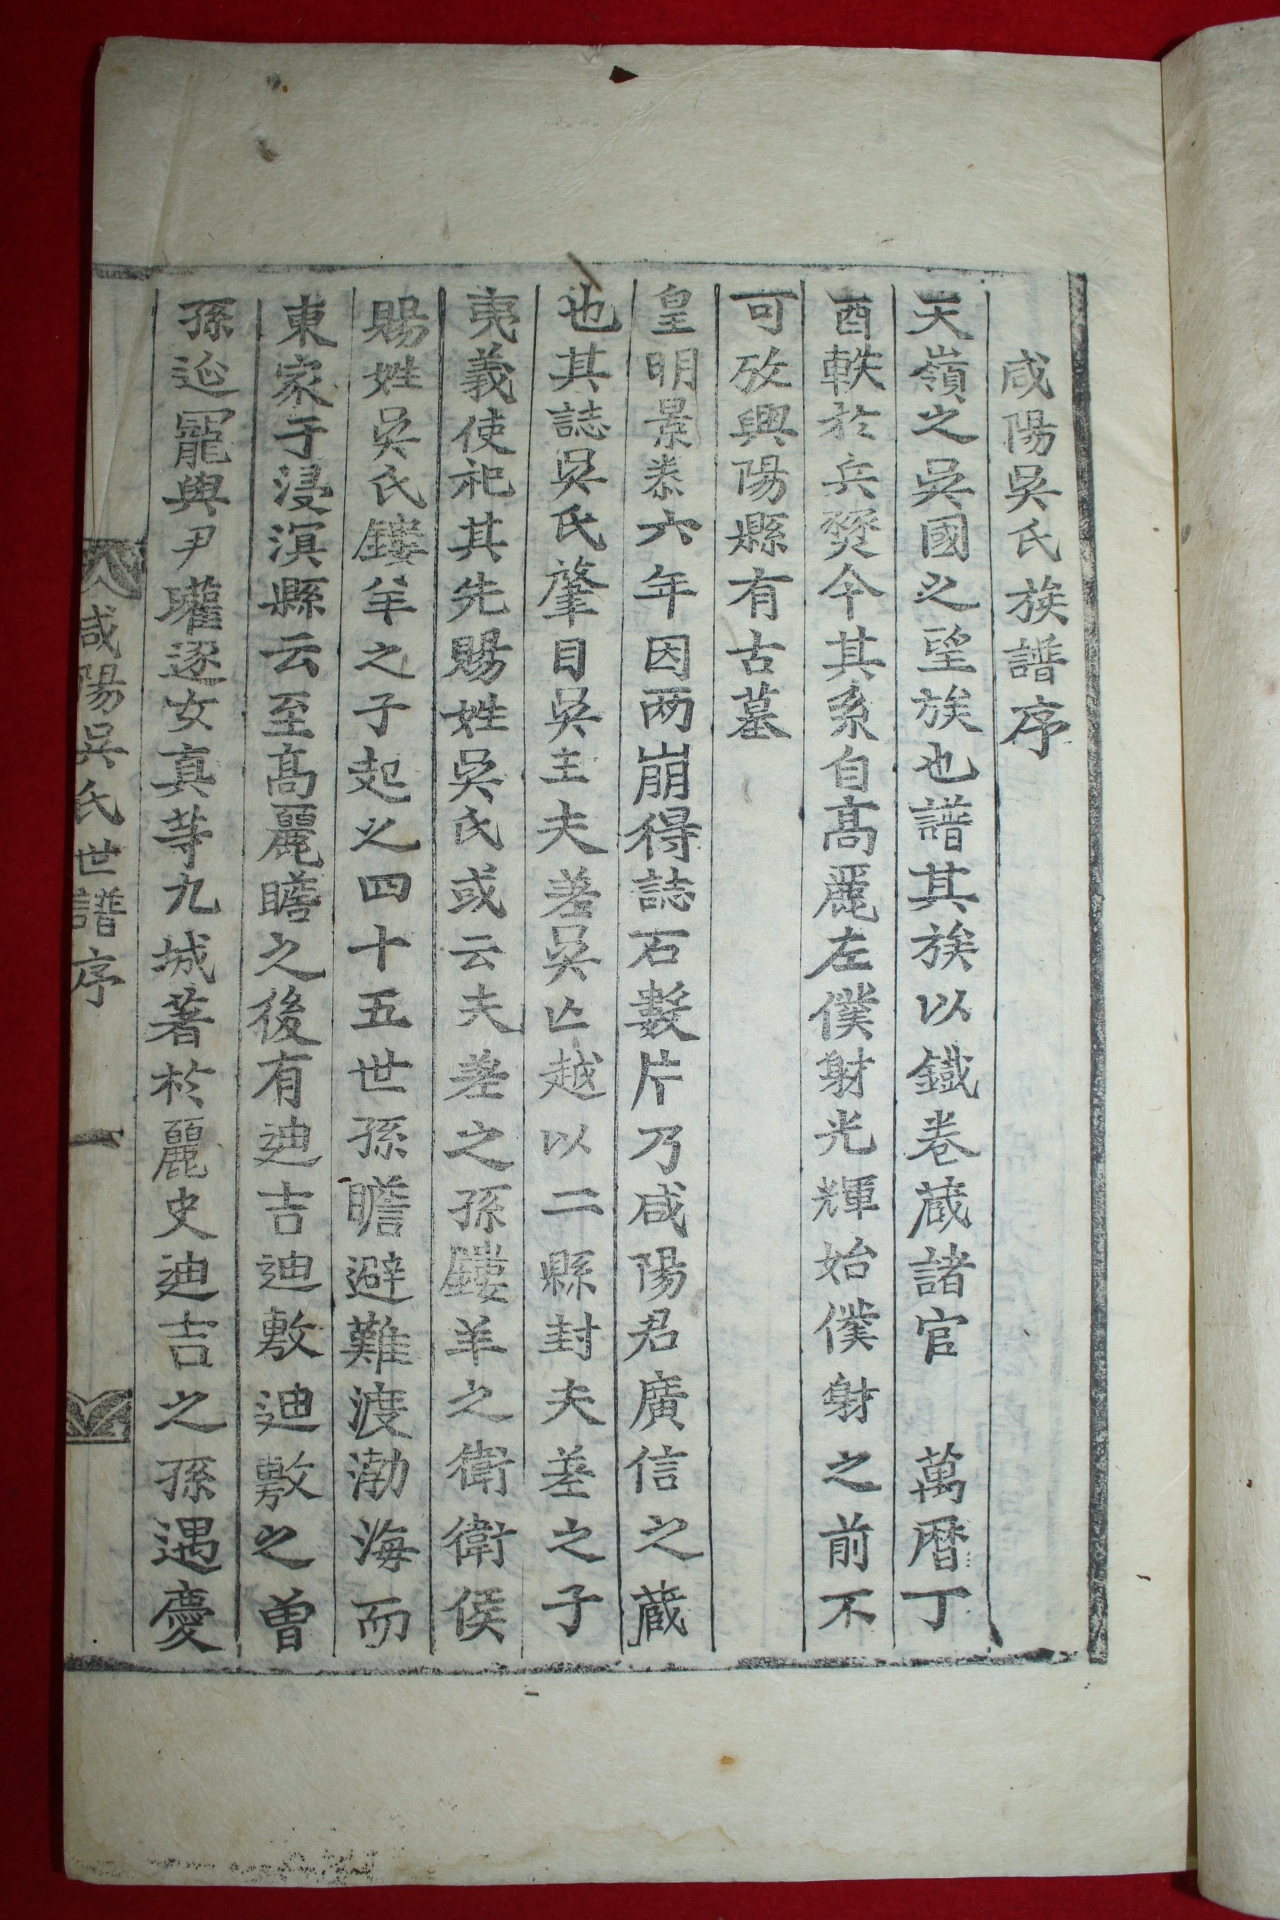 咸陽吳氏族譜序
天嶺之吳國之望族也譜其族以鐵卷蔵諸官 萬暦丁
酉軼於兵燹今其系自髙麗左僕射光輝始僕射之前不
可攷興陽縣有古墓
皇明景泰六年因雨崩得誌石數片乃咸陽君廣信之蔵
也其誌吳氏肇目吳主夫差吳亾越以二縣封夫差之子
夷義使祀其先賜姓吳氏或云夫差之孫鏤羊之衛衛侯
賜姓吳氏鏤羊之子起之四十五世孫瞻避難渡渤海而
東家于浸溟縣云至髙麗瞻之後有迪吉迪敷迪敷之曽
孫延寵與尹瓘逐女真等九城著於麗史迪吉之孫遇慶
咸陽吳氏世譜序 一